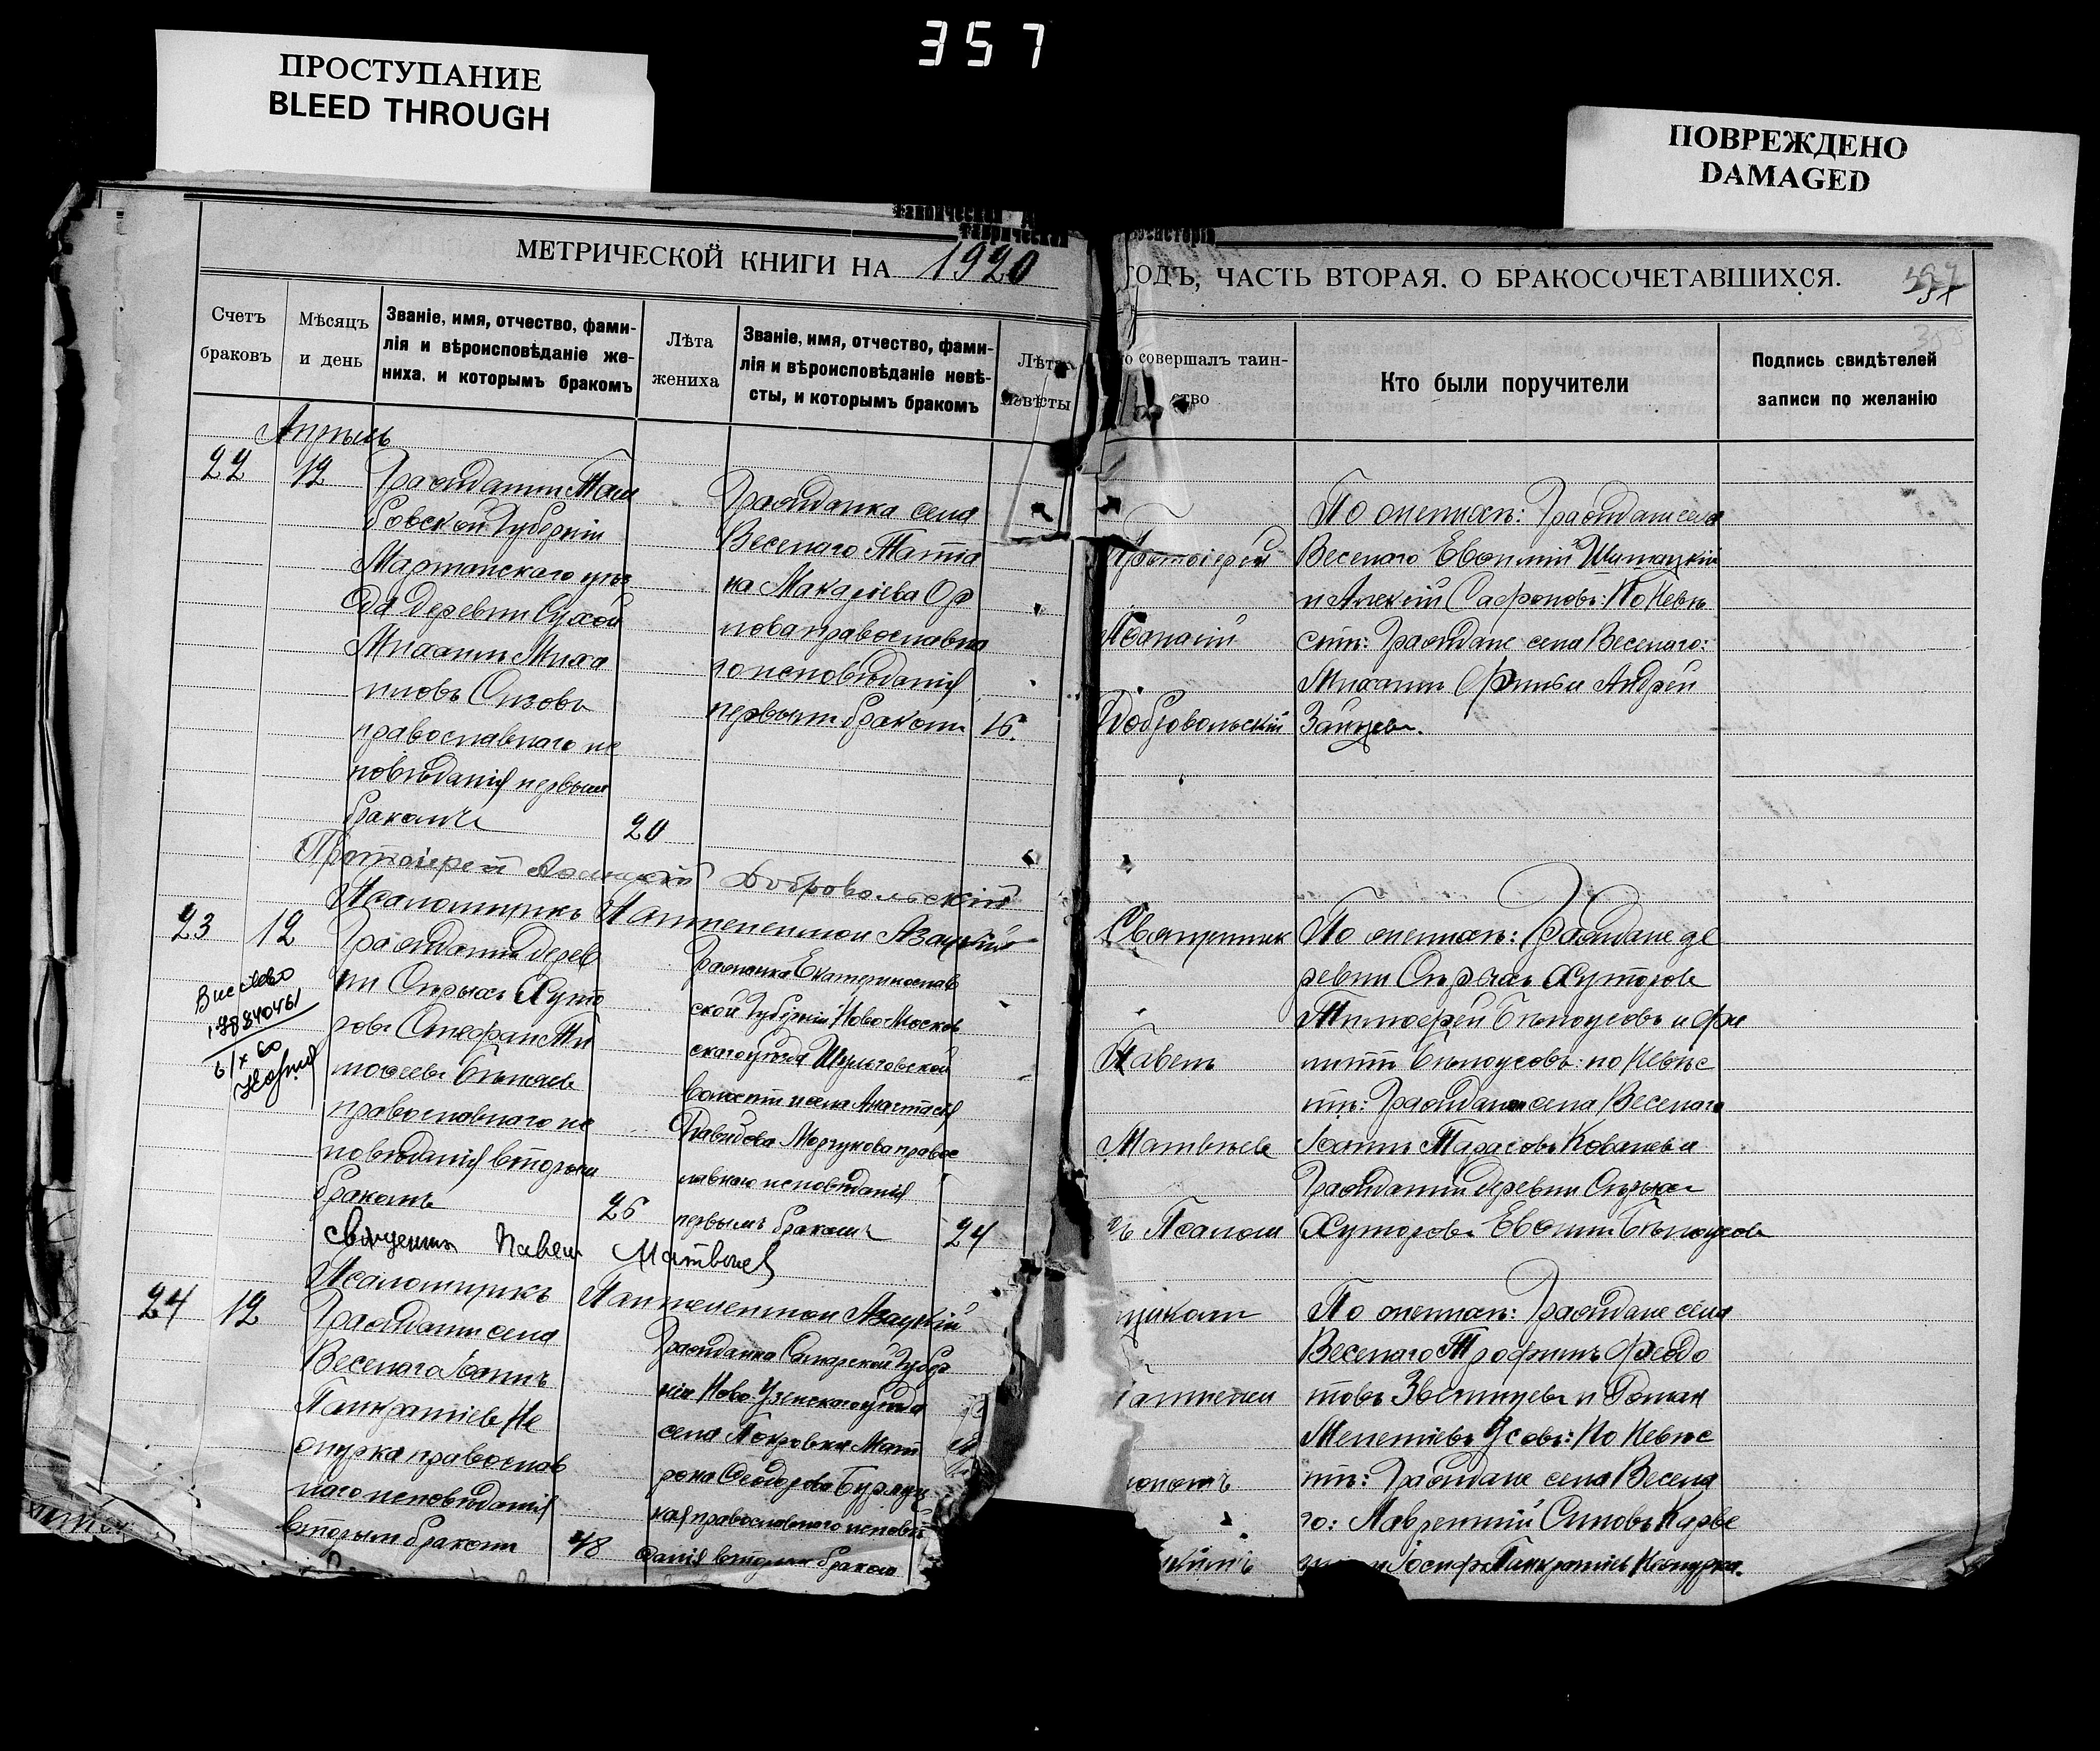 357
ПРОСТУПАНИЕ
BLEED THROUGH
ПОВРЕЖДЕНО
DAMAGED
МЕТРИЧЕСКОЙ КНИГИ НА 1920
ГОДЪ, ЧАСТЬ ВТОРАЯ, О БРАКОСОЧЕТАВШИХСЯ.
Счетъ
браковъ
Мѣсяцъ
и день
Званіе, имя, отчество, фами-
лія и вѣроисповѣданіе же-
ниха, и которымъ бракомъ
Лѣта
жениха
Званіе, имя, отчество, фами-
лія и вѣроисповѣданіе невѣ-
сты, и которымъ бракомъ
Лѣта
невѣсты
совершалъ таин-
ство
Кто были поручители
Подпись свидѣтелей
записи по желанію
Апрѣль
22
12
Гражданин Там
бовской Губерніи
уѣз
да деревни Сухой
Михаилъ Миха
иловъ Сизовъ
православнаго ис
повѣданія первым
бракомъ
20
Гражданка села
Веселаго Татіа
на Макаріева Ор
лова православна
го исповѣданія
первымъ бракомъ
16.
Протоіерей
Афанасій
Добровольскій
По женихѣ: Граждане села
Веселаго Евфимій
и Алексій Сафроновъ: По Невѣ
стѣ: Граждане села Веселаго:
Михаилъ Орлов и Андрей
Зайцевъ.
Протоіерей Афанасій Добровольскій
Псаломщикъ Пантелеимон Азацкій
23
12
Гражданин дерев
ни Сѣрых Хуто
ровъ Стефан Ти
мофеевъ
православнаго ис
повѣданія вторым
бракомъ
26
Гражданка Екатеринослав
ской Губерніи Ново Москов
скаго уѣзда
волости села Анастасія
Давидова православ
славнаго исповѣданія
первымъ бракомъ
24
Священник
Павелъ
Матвѣевъ
съ Псалом
По женихѣ: Граждане де
ревни Сѣрыхъ Хуторовъ
Тимофей Бѣлоусовъ и Фи
липп Бѣлоусовъ: по Невѣс
тѣ: Гражданин села Веселаго
Іоаннъ Тарасовъ Ковалевъ и
Гражданин деревни Сѣрыхъ
Хуторовъ Евфимий Бѣлоусовъ
61х60
Священникъ Павелъ Матвѣевъ
Псаломщикъ Пантелеимон Азацкій
24
12
Гражданин села
Веселаго Іоаннъ
Панкратіевъ Не
православ
наго исповѣданія
вторым бракомъ
48
Гражданка Самарской Губер
ніи Ново Узенскаго уѣзда
села Покровки Мат
рона Феодорова
кая православнаго исповѣ
данія вторым бракомъ
щикомъ
Пантелеи
мономъ
По женихѣ: Граждане села
Веселаго Трофимъ Федо
товъ и Роман
Мелетіевъ Усовъ: По Невѣс
тѣ: Граждане села Весела
го: Лаврентий
Іосифъ Панкратіевъ